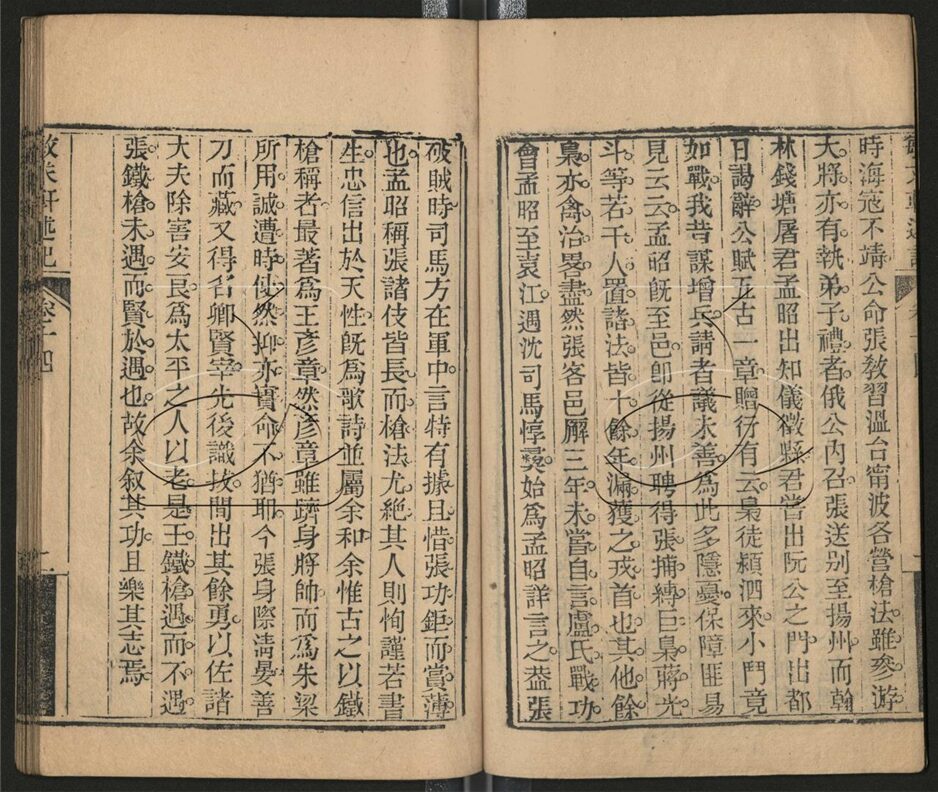 時海寇不靖公命張教習溫台甯波各營槍法雖參游
大將亦有執弟子禮者俄公內召張送別至揚州而翰
林錢塘屠君孟昭出知儀徵縣君嘗出阮公之門出都
日謁辭公賦五古一章贈行有云梟徒潁泗來小鬥竟
如戰我昔謀增兵請者議未善爲此多隱憂保障匪易
見云云孟昭旣至邑卽從揚州聘得張捕縛巨梟蔣光
斗等若干人置諸法皆十餘年漏獲之戎首也其他餘
梟亦禽治畧盡然張客邑廨三年未嘗自言盧氏戰功
會孟昭至袁江遇沈司馬惇彝始爲孟昭詳言之葢張
破賊時司馬方在軍中言特有據且惜張功鉅而賞薄
也孟昭稱張諸伎皆長而槍法尤絕其人則恂謹若書
生忠信出於天性旣爲歌詩並屬余和余惟古之以鐵
槍稱者最著爲王彥章然彥章雖躋身將帥而爲朱梁
所用誠遭時使然抑亦實命不猶耶今張身際清晏善
刀而藏又得名卿賢宰先後識拔間出其餘勇以佐諸
大夫除害安良爲太平之人以老是王鐵槍遇而不遇
張鐵槍未遇而賢於遇也故余敘其功且樂其志焉
述記 卷十四